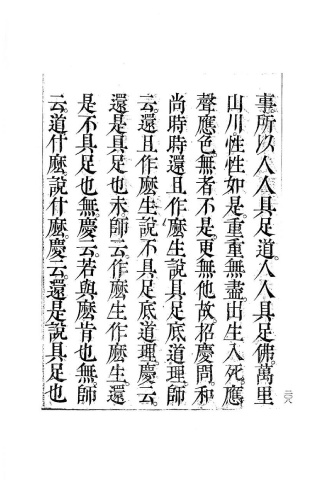 事。所以人人具足道。人人具足佛。萬里
山川性性如是。重重無盡。出生入死。應
聲應色無者不是。更無他故。招慶問。和
尚時時還且作麼生說具足底道理。師
云。還且作麼生說不具足底道理。慶云。
還是具足也未。師云。作麼生作麼生。還
是不具足也無。慶云。若與麼肯也無。師
云。道什麼。說什麼。慶云。還是說具足也
二六